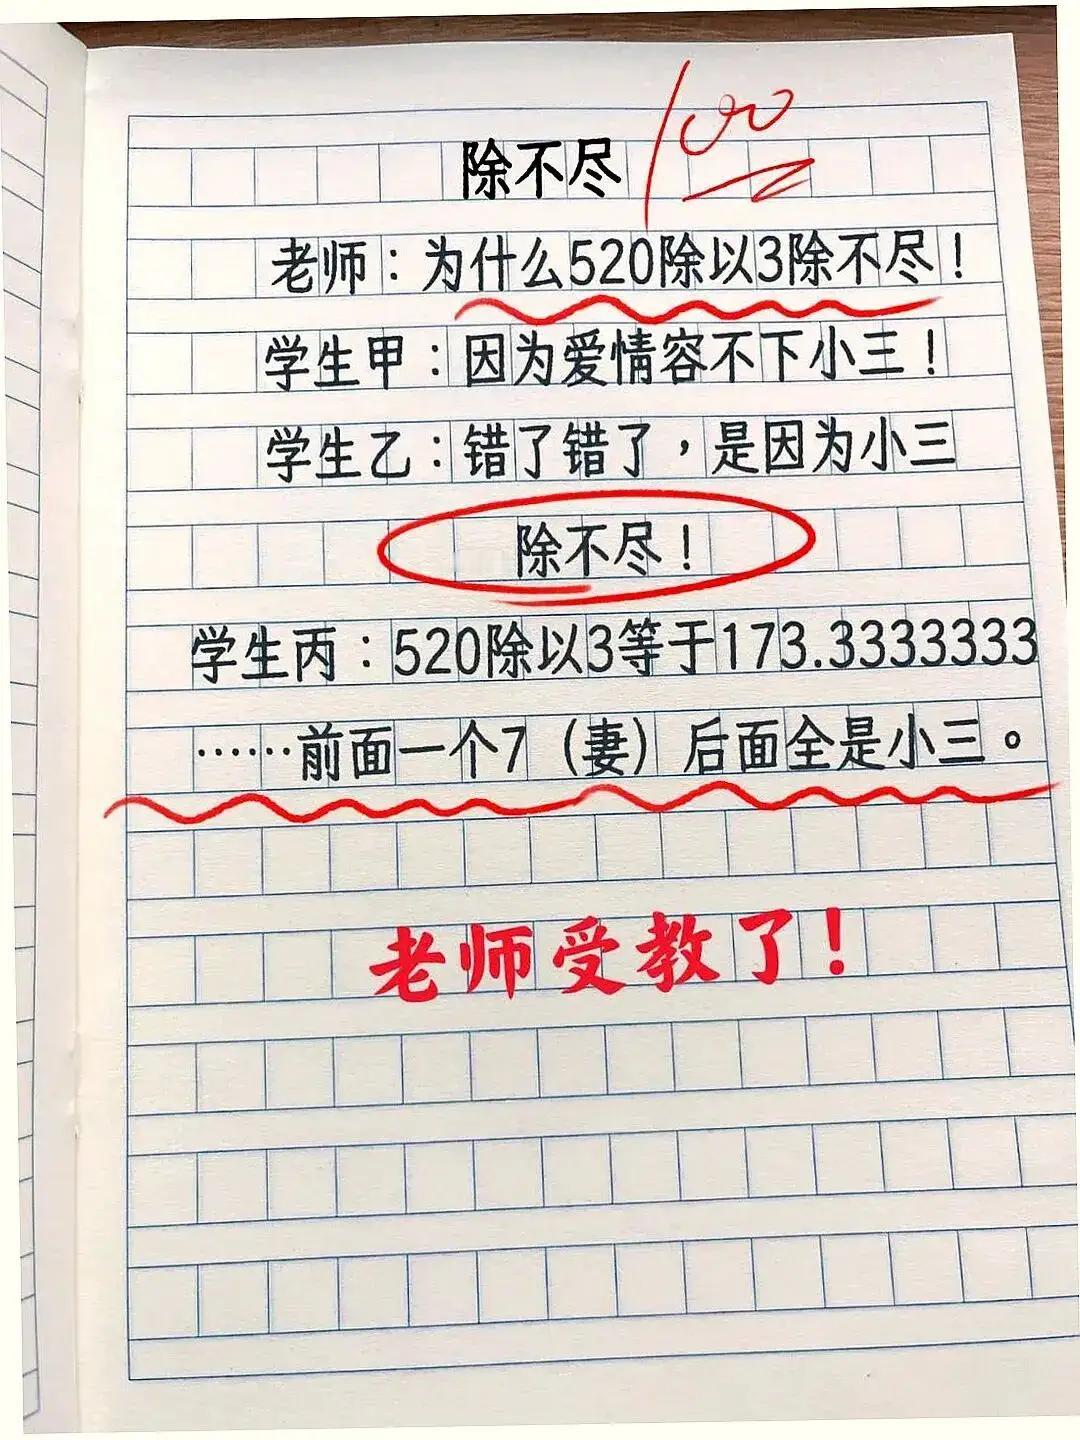 除不尽 100
老师：为什么520除以3除不尽！
学生甲：因为爱情容不下小三！
学生乙：错了错了，是因为小三
除不尽！
学生丙：520除以3等于173.3333333
……前面一个7（妻）后面全是小三。
老师受教了！